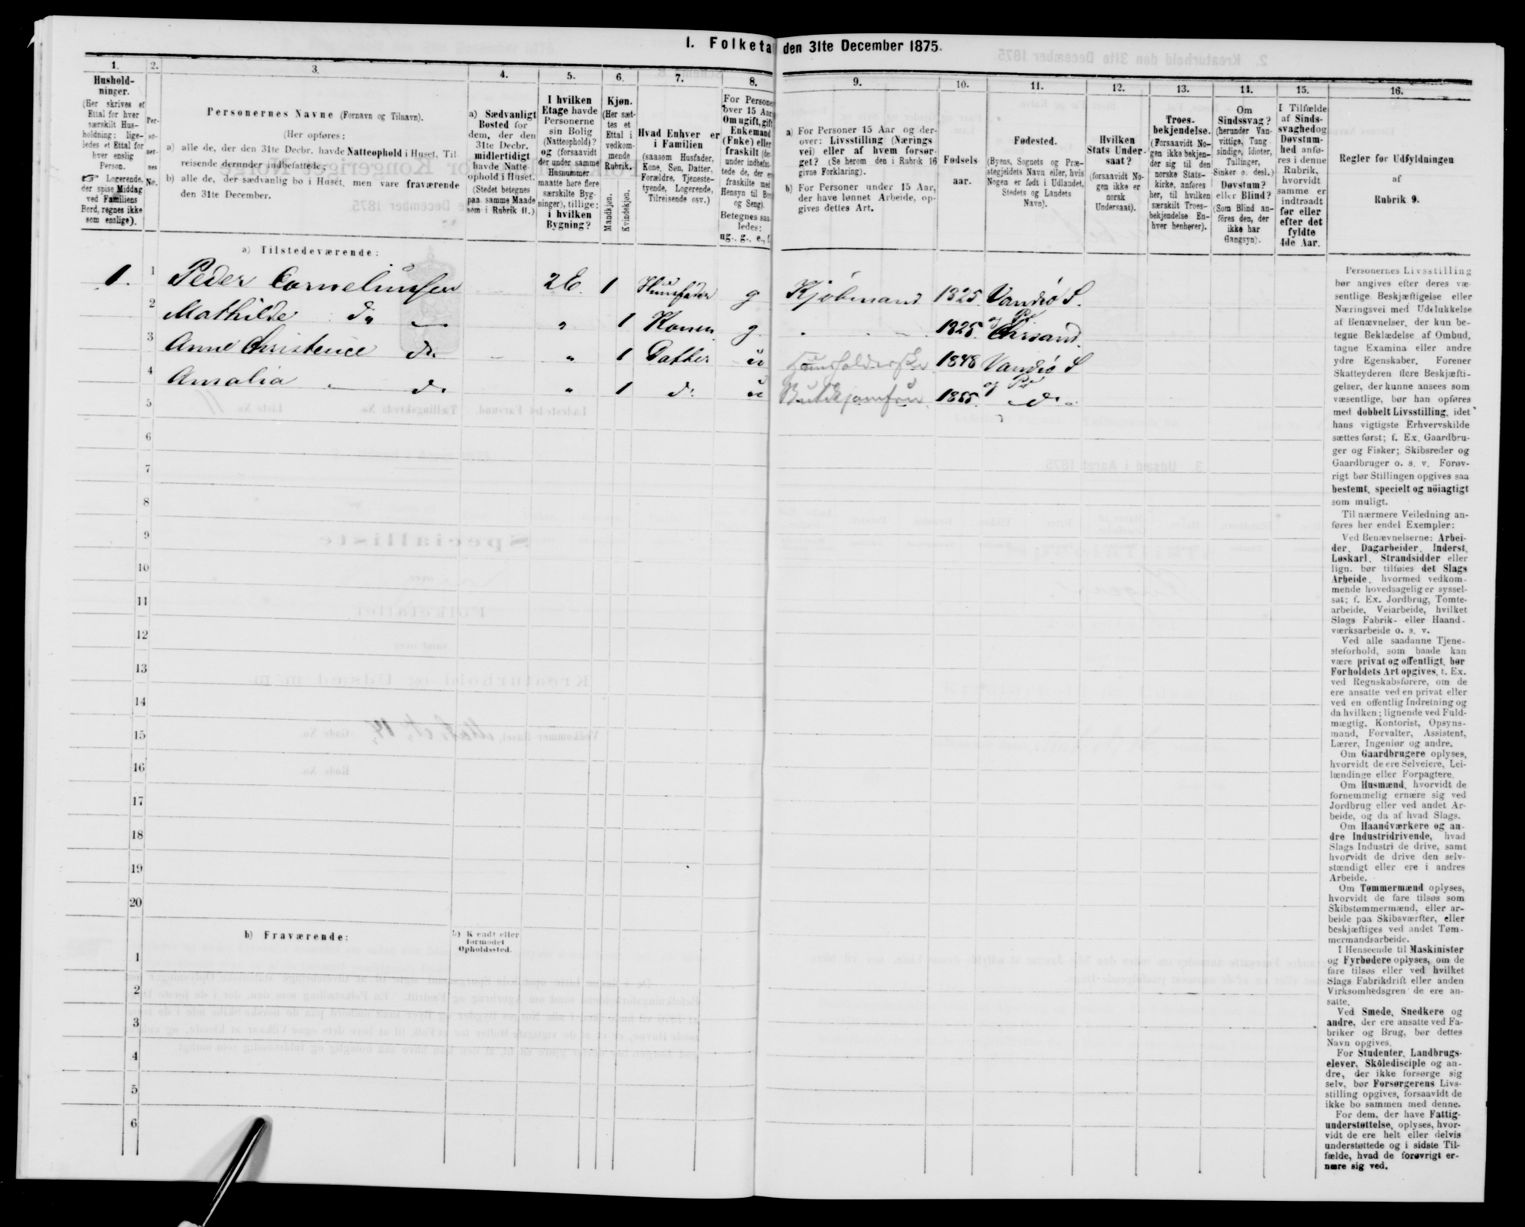 1. Folketa den 31te December 1875.
1. 2. 3. 4. 5. 6. 7. 8. 9. 10. 11. 12. 13. 14. 15. 16.
Hushold-
ninger.
(Her skrives et
Ettal for hver
særskilt Hus-
holdning; lige-
ledes et Ettal for
hver enslig
Person.
☞ Logerende,
der spise Middag
ved Familiens
Bord, regnes ikke
som enslige).
Per-
so-
ner-
nes
No.
Personernes Navne (Fornavn og Tilnavn).
(Her opføres:
a) alle de, der den 31te Decbr. havde Natteophold i Huset, Til
reisende derunder indbefattede;
b) alle de, der sædvanlig bo i Huset, men vare fraværende
den 31te December.
a) Sædvanligt
Bosted for
dem, der den
31te Decbr.
midlertidigt
havde Natte
ophold i Huset.
(Stedet betegnes
paa samme Maade
som i Rubrik 11.)
I hvilken
Etage havde
Personerne
sin Bolig
(Natteophold)?
og (forsaavidt
der under samme
Husnummer
maatte høre flere
særskilte Byg-
ninger), tillige:
i hvilken
Bygning?
Kjøn.
(Her sæt-
tes et
Ettal i
vedkom-
mende
Rubrik.
Mandkjøn.
Kvindekjøn.
Hvad Enhver er
i Familien
(saasom Husfader,
Kone, Søn, Datter,
Forældre, Tjeneste-
tyende, Logerende,
Tilreisende osv.)
For Persone
over 15 Aar
Om ugift, gift
Enkemand
(Enke) eller
fraskilt (de
under indbefat-
tede de, der e
fraskilte med
Hensyn til Bo
og Seng).
Betegnes saa-
ledes:
ug., g., e., f.
a) For Personer 15 Aar og der-
over: Livsstilling (Nærings
vei) eller af hvem forsør-
get? (Se herom den i Rubrik 16
givne Forklaring).
b) For Personer under 15 Aar,
der have lønnet Arbeide, op-
gives dettes Art.
Fødsels
aar.
Fødested.
(Byens, Sognets og Præ-
stegjeldets Navn eller, hvis
Nogen er født i Udlandet,
Stedets og Landets
Navn).
Hvilken
Stats Under-
saat?
(forsaavidt No-
gen ikke er
norsk
Undersaat).
Troes-
bekjendelse.
(Forsaavidt No-
gen ikke bekjen-
der sig til den
norske Stats-
kirke, anføres
her, til hvilken
særskilt Troes-
bekjendelse En-
hver henhører).
Om
Sindssvag?
(herunder Van-
vittige, Tung
sindige, Idioter,
Tullinger,
Sinker o. desl.)
Døvstum?
eller Blind?
(Som Blind an-
føres den, der
ikke har
Gangsyn).
I Tilfælde
af Sinds-
svaghed og
Døvstum-
hed anfø-
res i denne
Rubrik,
hvorvidt
samme er
indtraadt
før eller
efter det
fyldte
4de Aar.
Regler før Udfyldningen
af
Rubrik 9.
a) Tilstedeværende:
1. 1 Peder Corneliussen 2 E. 1 Huusfader g Kjøbmand 1825 Vandsø S.
2 Mathilde do „ 1 Konen g 1825 Chrsand.
3 Anne Christence do „ 1 Datter u Huusholderske 1848 Vandsø S
4 Amalia do „ 1 do u Butikjomfru 1855 do
5
6
7
8
9
10
11
12
13
14
15
16
17
18
19
20
b) Fraværende:
b) K endt eller
formodet
Opholdssted.
1
2
3
4
5
6
Personernes Livsstilling
bør angives efter deres væ-
sentlige Beskjæftigelse eller
Næringsvei med Udelukkelse
af Benævnelser, der kun be-
tegne Beklædelse af Ombud,
tagne Examina eller andre
ydre Egenskaber. Forener
Skatteyderen flere Beskjæfti-
gelser, der kunne ansees som
væsentlige, bør han opføres
med dobbelt Livsstilling, idet
hans vigtigste Erhvervskilde
sættes først; f. Ex. Gaardbru-
ger og Fisker; Skibsreder og
Gaardbruger o. s. v. Forøv-
rigt bør Stillingen opgives saa
bestemt, specielt og nøiagtigt
som muligt.
Til nærmere Veiledning an-
føres her endel Exempler:
Ved Benævnelserne: Arbei-
der, Dagarbeider, Inderst,
Løskarl, Strandsidder eller
lign. bør tilføies det Slags
Arbeide, hvormed vedkom-
mende hovedsagelig er syssel-
sat; f. Ex. Jordbrug, Tomte-
arbeide, Veiarbeide, hvilket
Slags Fabrik- eller Haand-
værksarbeide o. s. v.
Ved alle saadanne Tjene-
steforhold, som baade kan
være privat og offentligt, bør
Forholdets Art opgives, t. Ex.
ved Regnskabsførere, om de
ere ansatte ved en privat eller
ved en offentlig Indretning og
da hvilken; lignende ved Fuld-
mægtig, Kontorist, Opsyns-
mand, Forvalter, Assistent,
Lærer, Ingeniør og andre.
Om Gaardbrugere oplyses,
hvorvidt de ere Selveiere, Lei-
lændinge eller Forpagtere.
Om Husmænd, hvorvidt de
fornemmelig ernære sig ved
Jordbrug eller ved andet Ar-
beide, og da af hvad Slags.
Om Haandværkere og an-
dre Industridrivende, hvad
Slags Industri de drive, samt
hvorvidt de drive den selv-
stændigt eller ere i andres
Arbeide.
Om Tømmermænd oplyses,
hvorvidt de fare tilsøs som
Skibstømmermænd, eller ar-
beide paa Skibsværfter, eller
beskjæftiges ved andet Tøm-
mermandsarbeide.
I Henseende til Maskinister
og Fyrbødere oplyses, om de
fare tilsøs eller ved hvilket
Slags Fabrikdrift eller anden
Virksomhedsgren de ere an-
satte.
Ved Smede, Snedkere og
andre, der ere ansatte ved Fa-
briker og Brug, bør dettes
Navn opgives.
For Studenter, Landbrugs-
elever, Skoledisciple og an-
dre, der ikke forsørge sig
selv, bør Forsørgerens Livs-
stilling opgives, forsaavidt de
ikke bo sammen med denne.
For dem, der have Fattig-
understøttelse, oplyses, hvor-
vidt de ere helt eller delvis
understøttede og i sidste Til-
fælde, hvad de forøvrigt er-
nære sig ved.